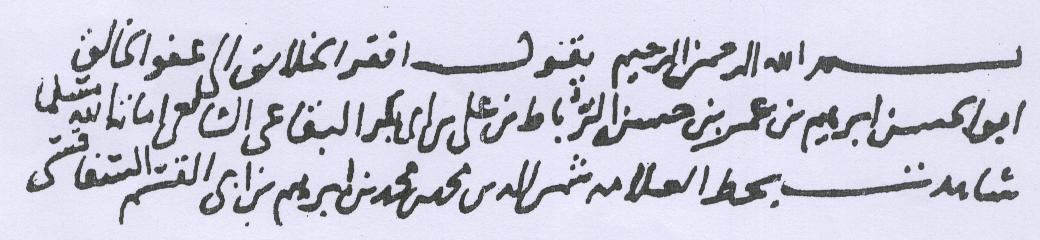 بسم الله الرحمن الرحيم يقول افقر الخلائق الى عفو الخالق
ابو الحسن ابرهيم بن عمر بن حسن الرباط بن علي بن ابي بكر البقاعي الشافعي
شاهدت بخط العلامه شمس الدين محمد بن محمد بن ابرهيم بن ابي القسم